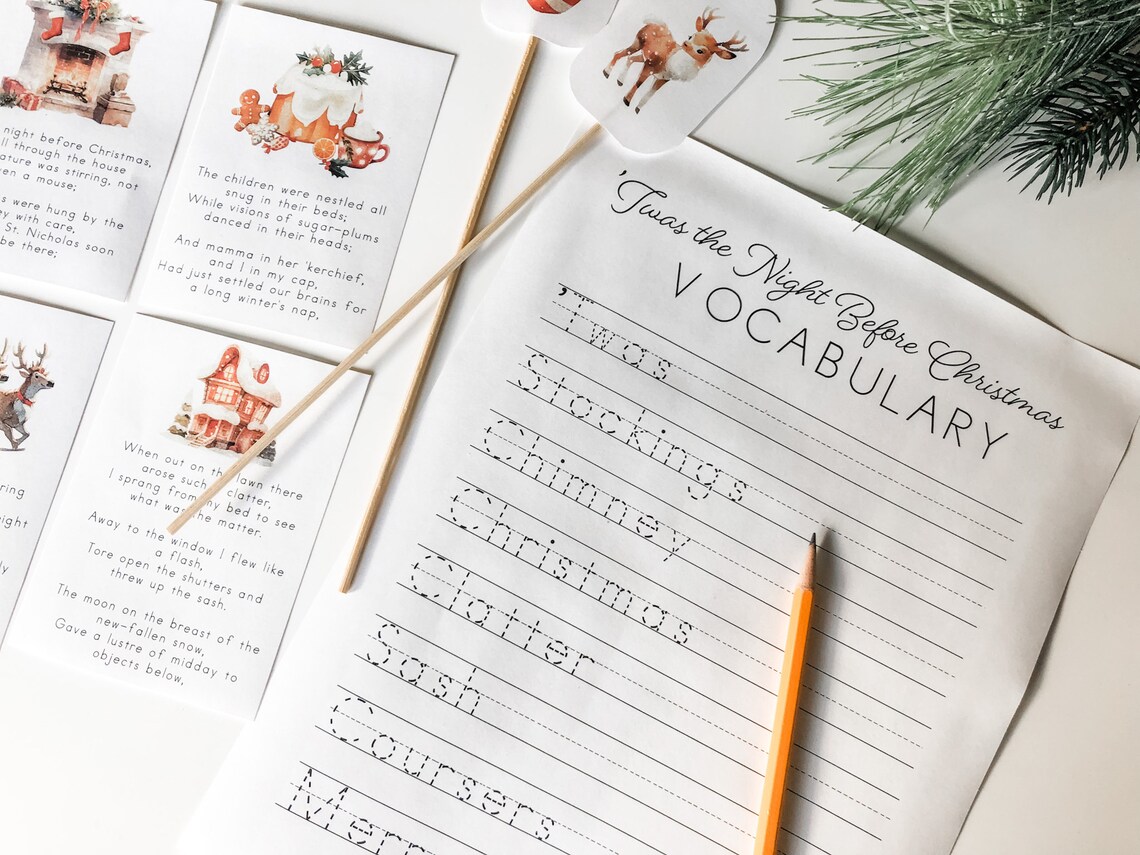 night before Christmas,
ll through the house
ature was stirring, not
en a mouse;
s were hung by the
y with care,
St. Nicholas soon
be there;
The children were nestled all
snug in their beds;
While visions of sugar-plums
danced in their heads;
And mamma in her 'kerchief,
and I in my cap,
Had just settled our brains for
a long winter's nap,
ring
ight
ly
When out on the lawn there
arose such a clatter,
I sprang from my bed to see
what was the matter.
Away to the window I flew like
a flash,
Tore open the shutters and
threw up the sash.
The moon on the breast of the
new-fallen snow,
Gave a lustre of midday to
objects below,
'Twas the Night Before Christmas
VOCABULARY
'Twas
Stockings
Chimney
Christmas
Clatter
Sash
Coursers
Merr